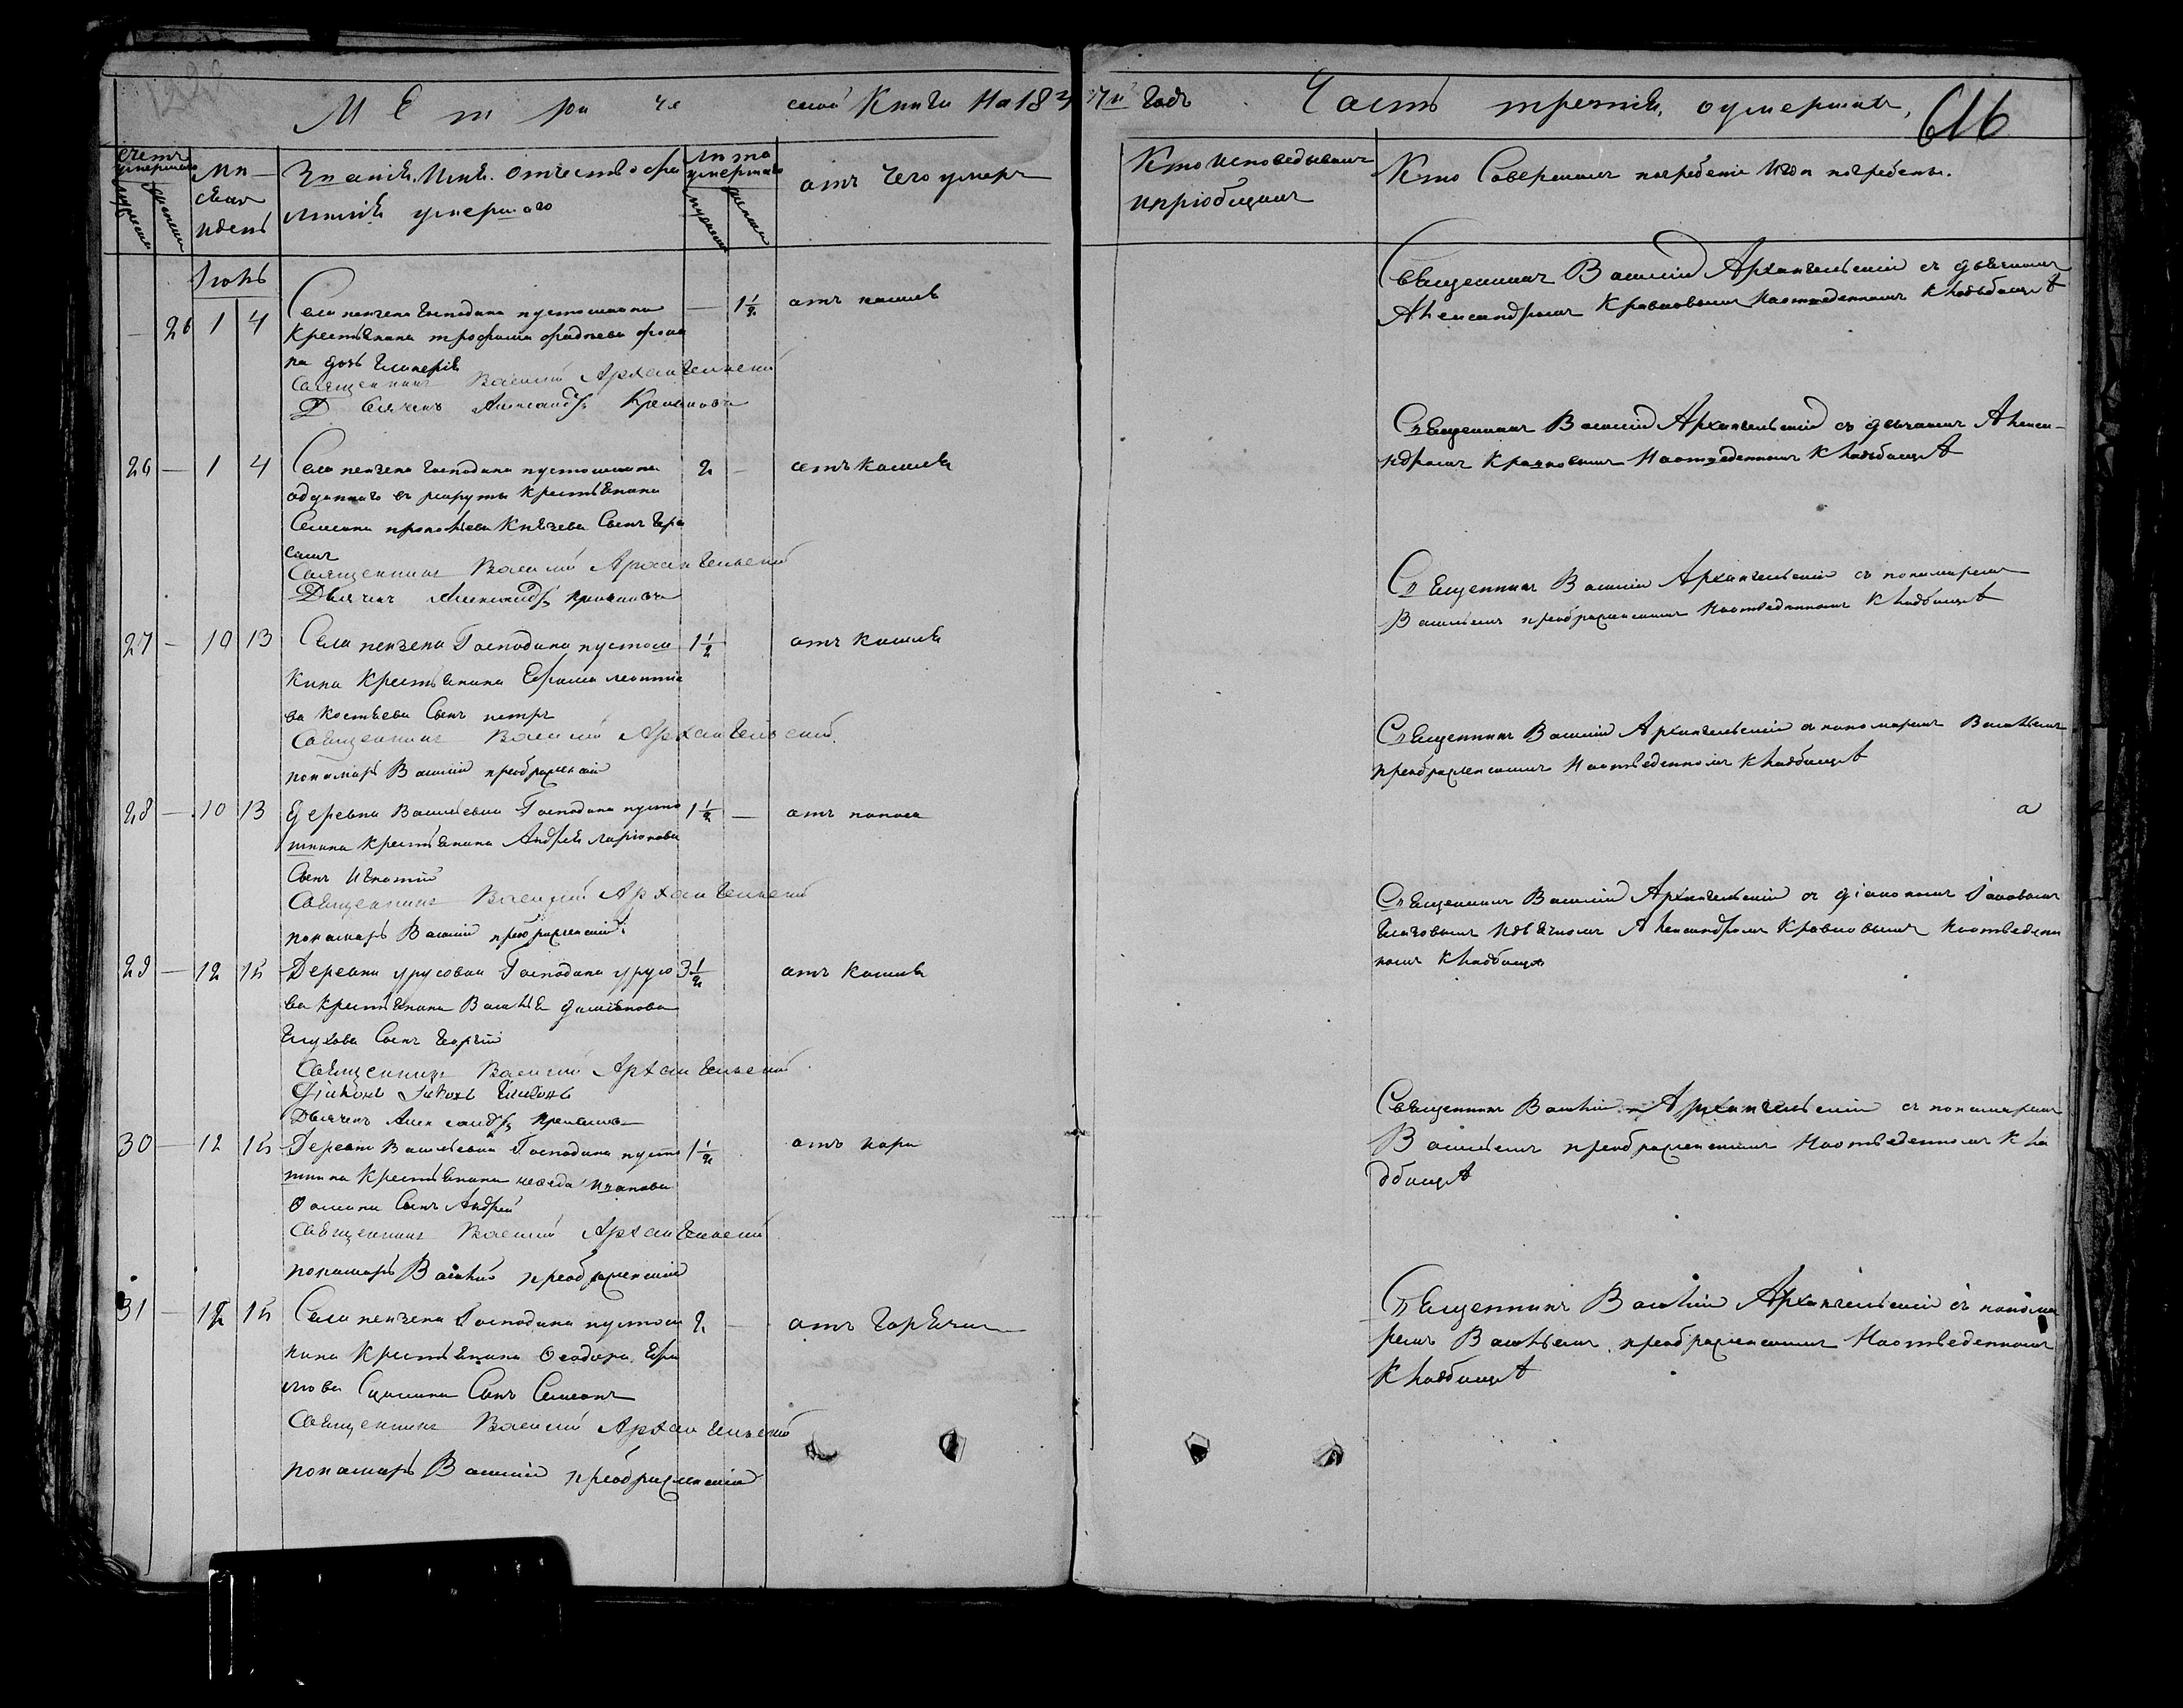 Метрической Книги На 1837й Годъ
Часть третія, о умершихъ,
616
Счетъ умершихъ
мужеска
женска
Мѣсяцъ и день
Званіе. Имя. Отчество и фа
милія умершаго
Лѣта умершаго
мужеска
женска
отъ чего умеръ
Кто исповедывалъ
и пріобщалъ
Кто Совершалъ погребеніе и гдѣ погребены.
Іюнь
— 26 1 4
Села Господина пустошкина
Крестьянина трофима
на дочь Гликерія
— 1½
отъ кашля
Священникъ Василій Архангельскій съ дьячкомъ
Александромъ на отведенномъ кладбищѣ
Священникъ Василій Архангельскій
Дьячекъ Александръ
26 — 1 4
Села Господина пустошкина
отданнаго въ рекруты крестьянина
Семена Князева Сынъ Гера
симъ
2 —
отъ кашля
Священникъ Василій Архангельскій съ дьячкомъ Алекса-
ндромъ на отведенномъ кладбищѣ
Священникъ Василій Архангельскій
Дьячекъ Александръ
27 — 10 13
Села Господина пустош
кина Крестьянина Ефима леонтіе
ва Сынъ петръ
1½
отъ кашля
Священникъ Василій Архангельскій съ пономаремъ
Васильемъ преображенскимъ на отведенномъ кладбищѣ
Священникъ Василій Архангельскій.
пономарь Василій преображенскій
28 — 10 13
Деревни Васильевки Господина пусто
шкина крестьянина Андрея ларіонова
Сынъ Игнатій
1½ —
отъ поноса
Священникъ Василій Архангельскій съ пономаремъ Васильемъ
преображенскимъ на отведенномъ кладбищѣ
Священникъ Василій Архангельскій
пономарь Василій преображенскій
29 — 12 15
Деревни урусовки Господина урусо
ва крестьянина Василья
Глухова Сынъ Георгій
3½
отъ кашля
Священникъ Василій Архангельскій съ діакономъ Іаковымъ
и дьячкомъ Александромъ на отведен
номъ кладбищѣ
Священникъ Василій Архангельскій
Діаконъ Іаковъ
Дьячекъ Александръ
30 — 12 15
Деревни Васильевки Господина пусто
шкина Крестьянина Иванова
Фомина Сынъ Андрей
1½
отъ кори
Священникъ Василій Архангельскій съ пономаремъ
Васильемъ преображенскимъ на отведенномъ кла
дбищѣ
Священникъ Василій Архангельскій
пономарь Василій преображенскій
31 — 12 15
Села Господина пустош
кина Крестьянина Ѳеодора
Сынъ Семенъ
2 —
отъ горячки
Священникъ Василій Архангельскій съ понома
ремъ Васильемъ преображенскимъ на отведенномъ
кладбищѣ
Священникъ Василій Архангельскій
пономарь Василій преображенскій